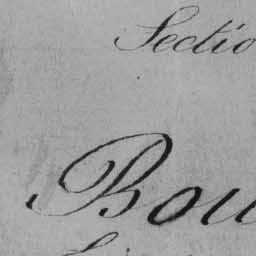 Sectio
Bou